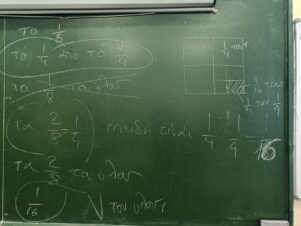 το 1/8
το 1/4 από τα 1/4
το 1/8 του όλου
τα 2/8 = 1/4 επειδή είναι 1/4 : 1/4 = 1/16
τα 2/8 του όλου
1/16 του όλου
1/4 του
1/16 του
1/4 του 1/4